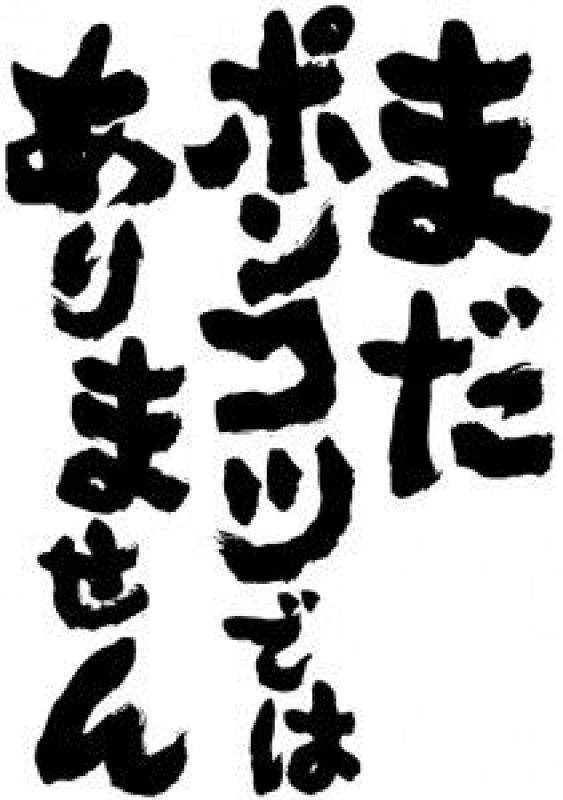 まだ
ポンコツでは
ありません